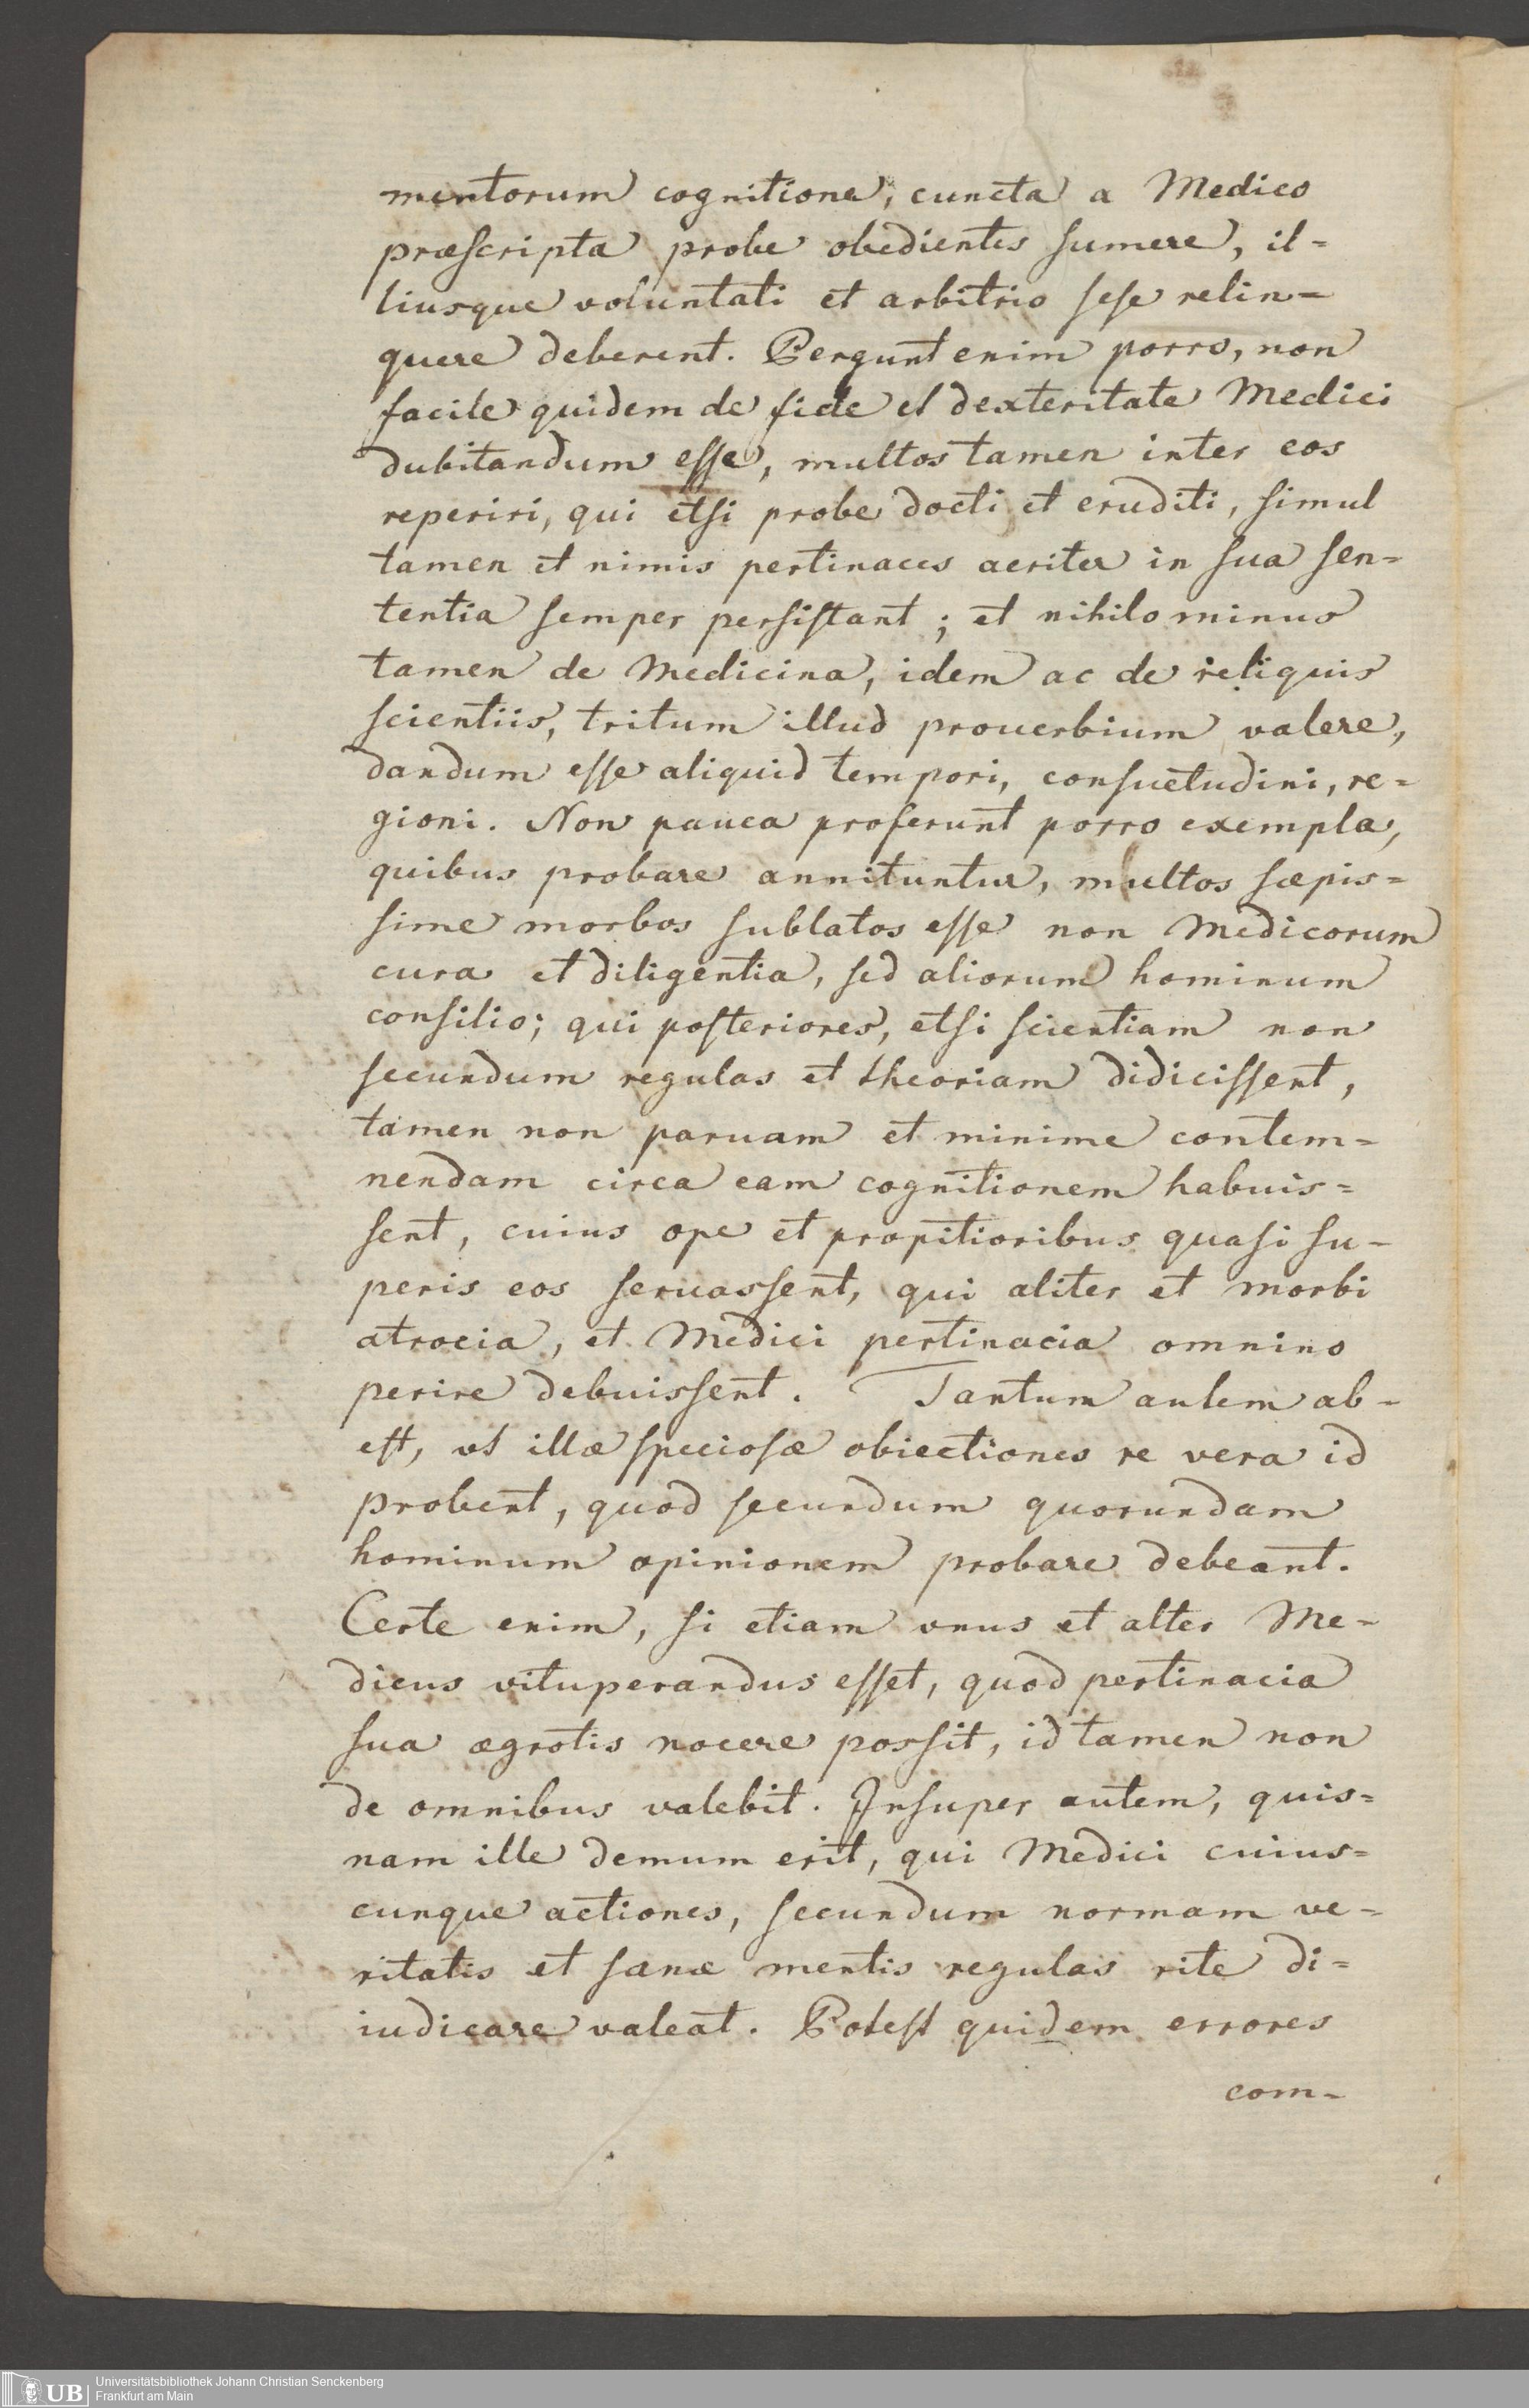 mentorum cognitione, cuncta a Medico
præscripta probe obedientes sumere, il=
liusque voluntati et arbitrio sese relin=
quere deberent. Pergunt enim porro, non
facile quidem de fide et dexteritate Medici
dubitandum esse, multos tamen inter eos
reperiri, qui etsi probe docti et eruditi, simul
tamen et nimis pertinaces acriter in sua sen=
tentia semper persistant; et nihilo minus
tamen de Medicina, idem ac de reliquis
scientiis, tritum illud prouerbium valere,
dandum esse aliquid tempori, consuetudini, re=
gioni. Non pauca proferunt porro exempla,
quibus probare annituntur, multos sæpis=
sime morbos sublatos esse non Medicorum
cura et diligentia, sed aliorum hominum
consilio; qui posteriores, etsi scientiam non
secundum regulas et theoriam didicissent,
tamen non paruam et minime contem=
nendam circa eam cognitionem habuis=
sent, cuius ope et propitioribus quasi su=
peris eos seruassent, qui aliter et morbi
atrocia, et Medici pertinacia omnino
perire debuissent. Tantum autem ab=
est, vt illæ speciosæ obiectiones re vera id
probent, quod secundum quorundam
hominum opinionem probare debeant.
Certe enim, si etiam vnus et alter Me=
dicus vituperandus esset, quod pertinacia
sua ægrotis nocere possit, id tamen non
de omnibus valebit. Insuper autem, quis=
nam ille demum erit, qui Medici cuius=
cunque actiones, secundum normam ve=
ritatis et sanæ mentis regulas rite di=
iudicare valeat. Potest quidem errores
com=
UB
Universitätsbibliothek Johann Christian Senckenberg
Frankfurt am Main